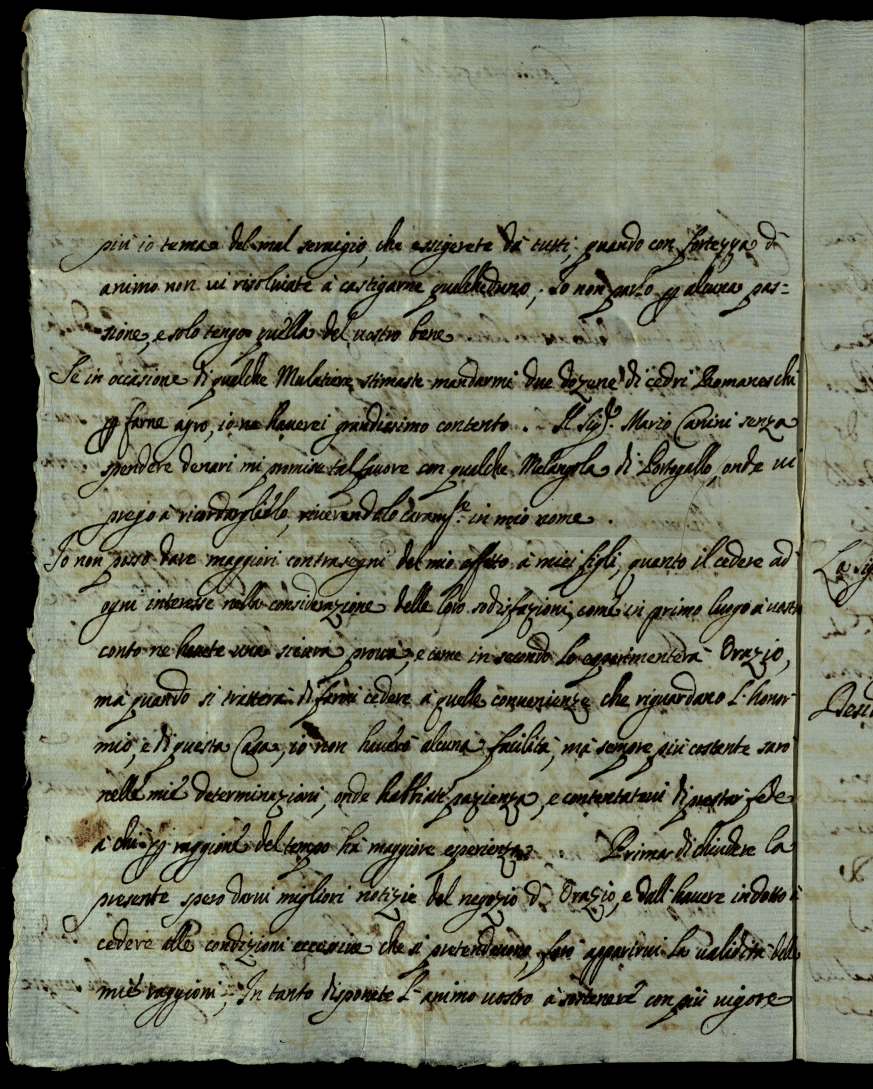 più io temae del mal seruigio, che essigerete da tutti; quando con fortezza d'
animo non ui risoluiate à castigarne qualcheduno; Io non parlo p alcuna pas=
sione, e solo tengo quella del uostro bene
Se in occasione di qualche Mulatiere stimaste mandarmi due dozene di cedri Romaneschi
p farne agro, io ne hauerei grandissimo contento. Il Sig.re Mario Canini senza
spendere denari mi promise tal fauore con qualche Melangola di Portogallo, onde ui
prego à ricordarglielo, riuerendolo caram.te in mio nome.
Io non posso dare maggiori contrasegni del mio affetto à miei figli, quanto il cedere ad
ogni interesse nella considerazione delle loro sodisfazioni, come in primo luogo à uostro
conto ne hauete una sicura proua, e come in secondo lo esperimenterà Orazio,
mà quando si tratterà di farmi cedere à quelle conuenienze che riguardano l'honor
mio, e di questa Casa, io non hauerò alcuna facilità, mà sempre più costante sarò
nelle mie determinazioni, onde habbiate pazienza, e contentateui di prestar fede
à chi p raggione del tempo hà maggiore esperienza Prima di chiudere la
presente spero darui migliori notizie del negozio d'Orazio, e dall'hauere indotto à
cedere alle condizioni che si pretendeuono, farò apparirui la ualidità delle
mie raggioni; In tanto disponete l'animo uostro à sostenere con più uigore
La